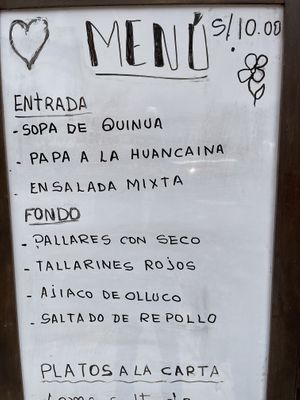 MENÚ S/10.00
ENTRADA
- SOPA DE QUINUA
- PAPA A LA HUANCAINA
- ENSALADA MIXTA
FONDO
- PALLARES CON SECO
- TALLARINES ROJOS
- AJIACO DE OLLUCO
- SALTADO DE REPOLLO
PLATOS A LA CARTA